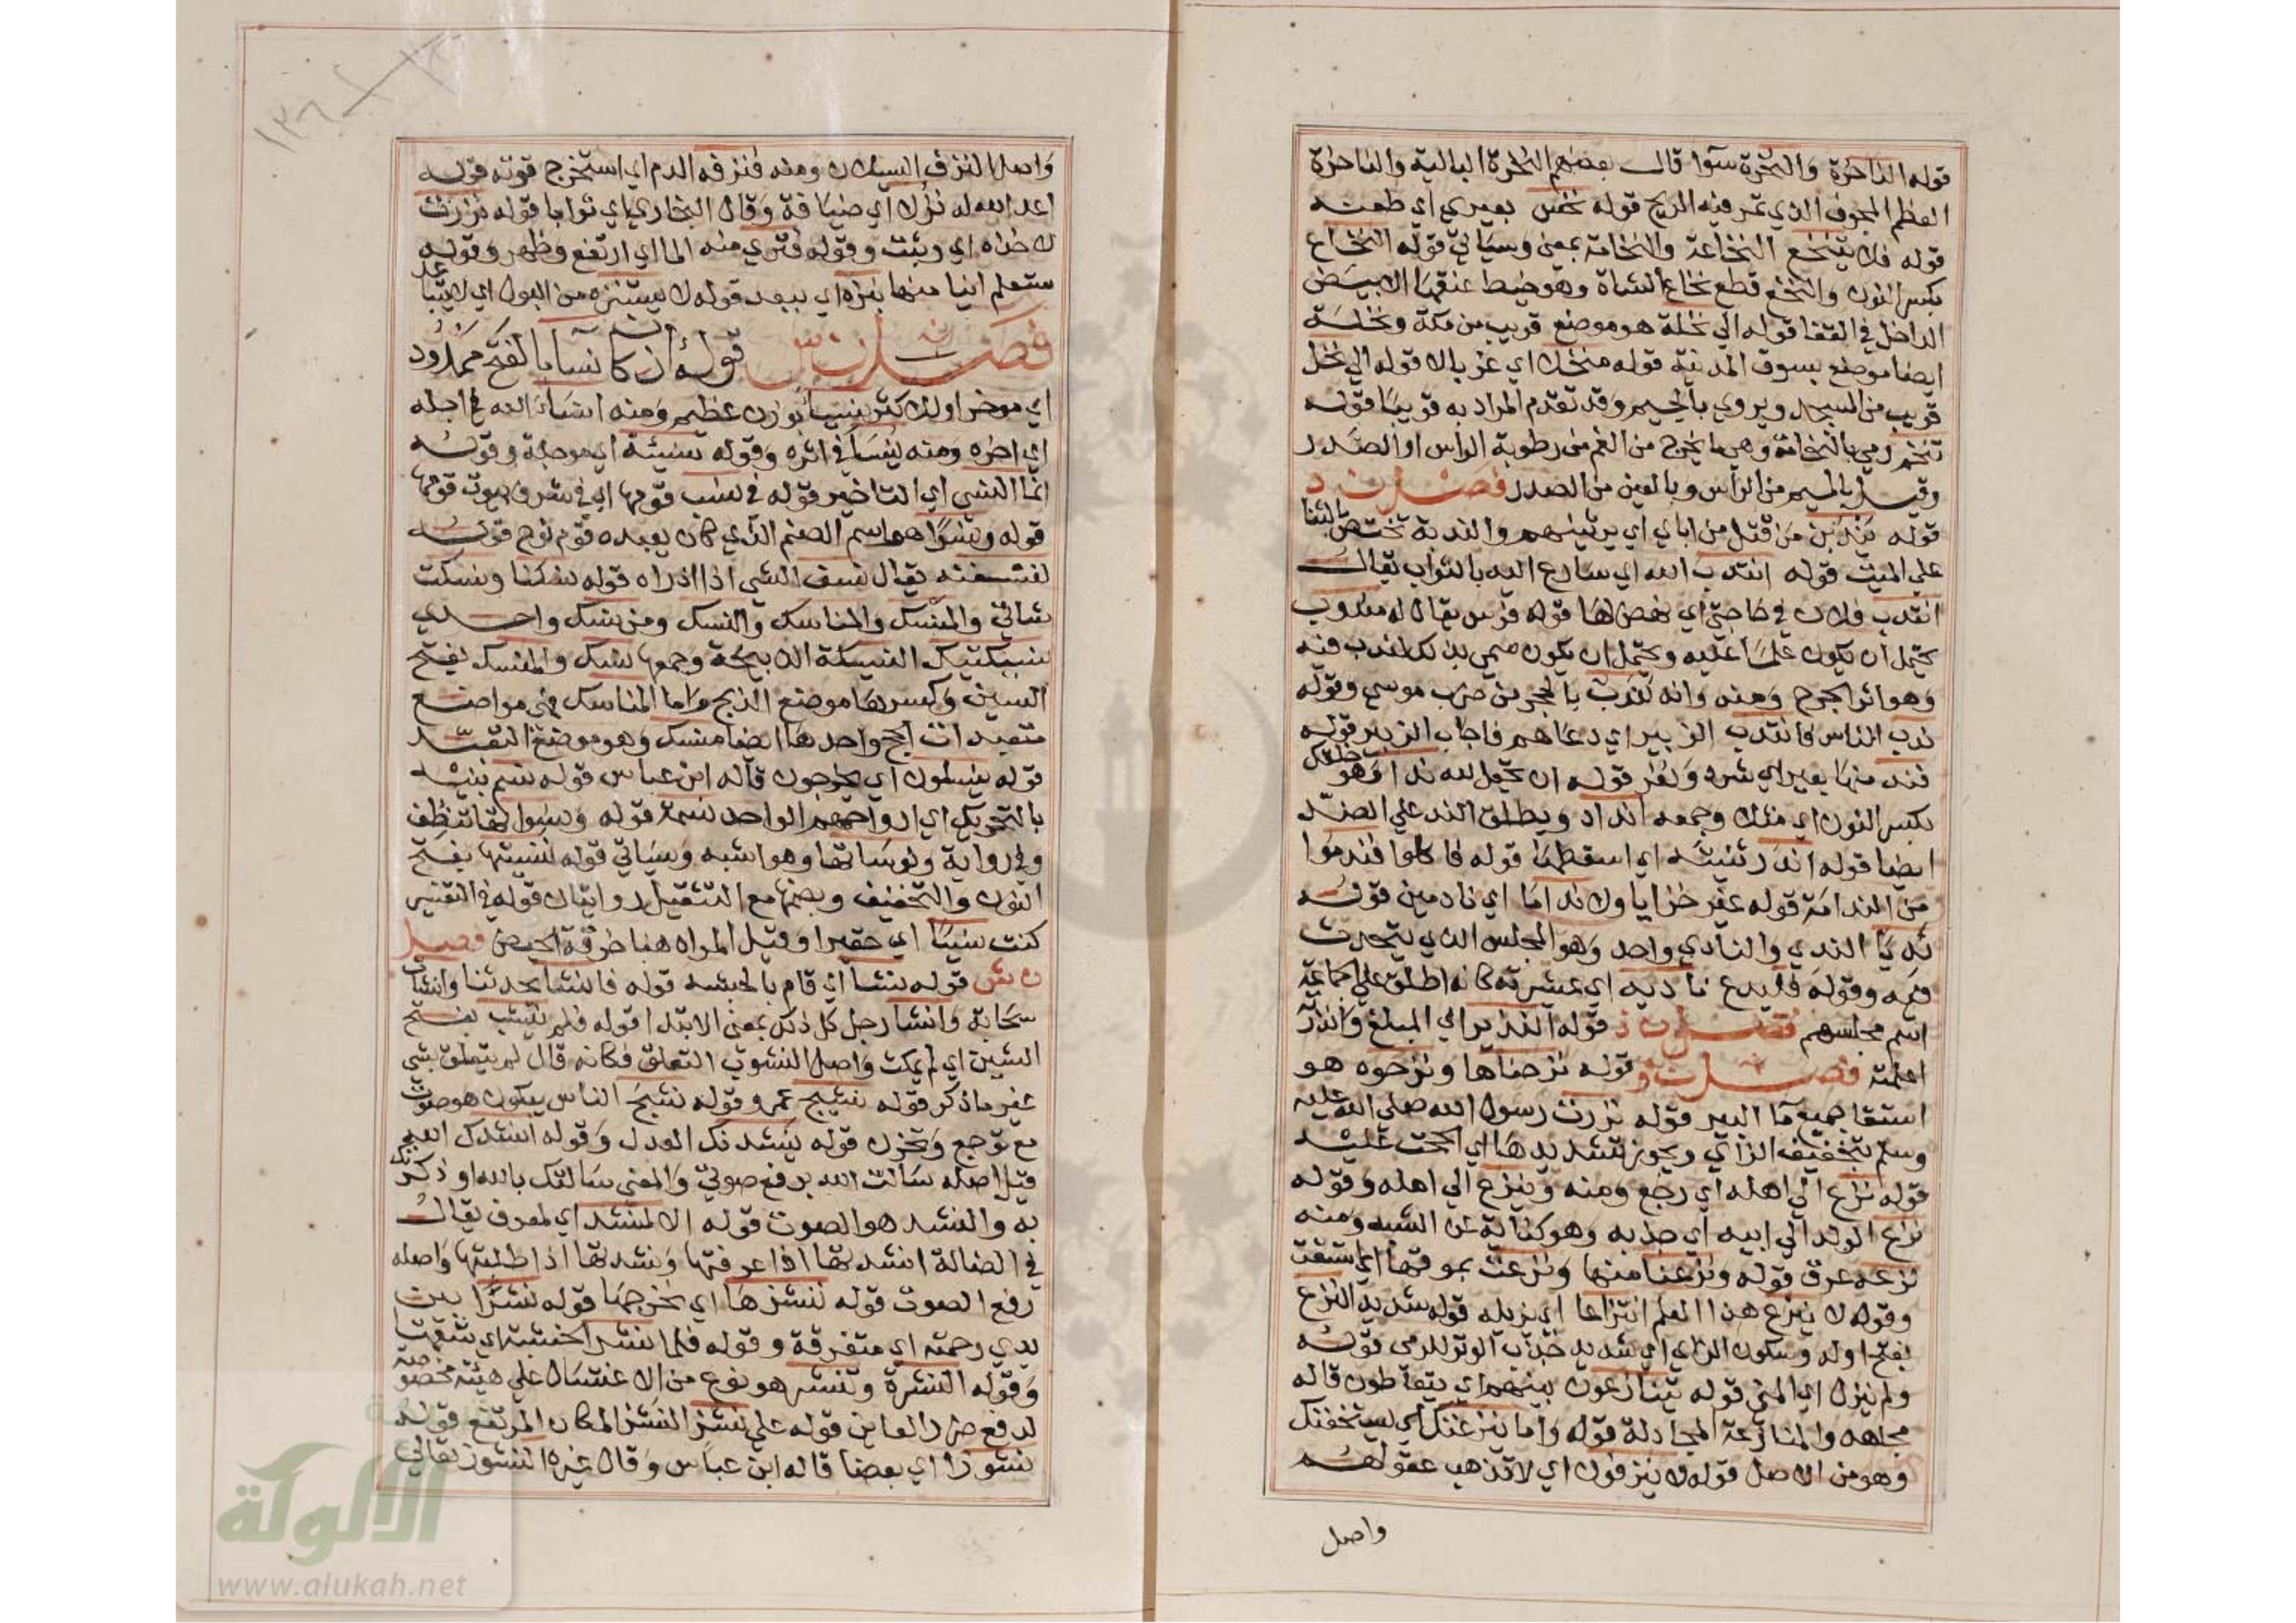 قوله الناخرة والنخرة سوا قال بعضهم النخرة البالية والناخرة
العظم المجوف الذي تمر فيه الريح قوله نخس بعيري اي طعنه
قوله فلا يتنخع النخاعة والنخامة بمعنى وسياتي قوله النخاع
بكسر النون والنخع قطع نخاع الشاة وهو خيط عنقها الابيض
الداخل في القفا قوله الي نخلة هو موضع قريب من مكة ونخلة
ايضا موضع بسوق المدينة قوله منخلا اي غربالا قوله الي نخل
قريب من المسجد ويروي بالجيم وقد تقدم المراد به قريبا قوله
تنخم رمي بالنخامة وهي ما يخرج من الفم من رطوبة الراس او الصدر
وقيل بالميم من الراس وبالعين من الصدر فصل ن د
قوله يندبن من قتل من اباي اي يرثينهم والندبة تختص بالثنا
علي الميت قوله انتدب الله اي سارع الله بالثواب يقال
انتدب فلان في حاجتي اي نهض لها قوله فرس يقال له مندوب
يحتمل ان يكون علما عليه ويحتمل ان يكون سمي بذلك لندب فيه
وهو اثر الجرح ومنه وانه لندب بالحجر من ضرب موسي وقوله
ندب الناس فانتدب الزبير اي دعاهم فاجاب الزبير قوله
فند منها بعير اي شرد ونفر قوله ان تجعل لله ندا وهو خلقك
بكسر النون اي مثلا وجمعه انداد ويطلق الند علي الضد
ايضا قوله اندر ثنيته اي اسقطها قوله فاكلوا فندموا
من الندامة قوله غير خزايا ولا نداما اي نادمين قوله
نديا الندي والنادي واحد وهو المجلس الذي يتحدث
فيه وقوله فليدع ناديه اي عشيرته كانه اطلق علي الجماعة
اسم مجلسهم فصل ن ذ قوله النذير اي المبلغ وانذر
اعلمه فصل ن ز قوله نزحناها ونزحوه هو
استقا جميع ما البير قوله نزرت رسول الله صلي الله عليه
وسلم بتخفيف الزاي ويجوز تشديدها اي الححت عليه
قوله نزع الي اهله اي رجع ومنه وينزع الي اهله وقوله
نزع الولد الي ابيه اي جذبه وهو كناية عن الشبه ومنه
نزعه عرق قوله ونزعنا منها ونزعت بموقها اي استقت
وقوله لا ينزع هذا العلم انتزاعا اي يزيله قوله شديد النزع
بفتح اوله وسكون الزاي اي شديد جذب الوتر للرمي قوله
ولم ينزل اي المني قوله يتنازعون بينهم اي يتعاطون قاله
مجاهد والمنازعة المجادلة قوله واما ينزغنك اي يستخفنك
وهو من الاصل قوله لا ينزفون اي لا تذهب عقولهم
واصل
واصل النزف السيلان ومنه فنزفه الدم اي استخرج قوته قوله
اعد الله له نزلا اي ضيافة وقال البخاري اي ثوابا قوله نزرت
لاخذاه اي وثبت وقوله فنزي منه الما اي ارتفع وظهر وقوله
ستعلم اينا منها بنزه اي ببعد قوله لا يستنزه من البول اي لا يتباعد
فصل ن س قوله ان كان نسآ بالفتح ممدود
اي موخرا ولك كثر نسيا بوزن عظيم ومنه انسا الله في اجله
اي اخره ومنه ينسا في اثره وقوله نسيئة اي موجلة وقوله
انما النسي اي التاخير قوله في نسب قومها اي في شرف بيوت قومها
قوله ونسرا هو اسم الصنم الذي كان يعبده قوم نوح قوله
لننسفنه يقال نسف الشي اذا اذراه قوله نسكنا ونسكت
شاتي والمنسك والمناسك والنسك ومن نسك واحدي
نسيكتيك النسيكة الذبيحة وجمعها نسك والمنسك بفتح
السين وكسرها موضع الذبح واما المناسك فهي مواضع
متعبدات الحج واحدها ايضا منسك وهو موضع التعبد
قوله ينسلون اي يخرجون قاله ابن عباس قوله نسم بنيه
بالتحريك اي ارواحهم الواحد نسمة قوله ونسواتها تنطف
وفي رواية ونوساتها وهو اشبه وسياتي قوله نسيتها بفتح
النون والتخفيف وبضمها مع التثقيل روايتان قوله في التفسير
كنت نسيا اي حقيرا وقيل المراد هنا خرقة الحيض فصل
ن ش قوله ننشا اي قام بالحبشة قوله فانشا يحدثنا وانشات
سحابة وانشا رجل كل ذلك بمعني الابتدا قوله فلم ينشب بفتح
الشين اي لم يمكث واصل النشوب التعلق فكانه قال لم يتعلق بشي
غير ما ذكر قوله نشيج عمرو وقوله نشج الناس يبكون هو صوت
مع توجع وتحزن قوله ينشدنك العدل وقوله انشدك الله
قيل اصله سالت الله برفع صوتي والمعني سالتك بالله او ذكرتك
به والنشد هو الصوت قوله الا لمنشد اي لمعرف يقال
في الضالة انشدتها اذا عرفتها ونشدتها اذا طلبتها واصله
رفع الصوت قوله ننشزها اي نخرجها قوله نشرا بين
يدي رحمته اي متفرقة وقوله فلما نشر الخشبة اي شقها
وقوله النشرة وتنشر هو نوع من الاغتسال علي هيئة مخصوصة
لدفع ضرر العاين قوله علي نشز النشز المكان المرتفع قوله
نشوزا اي بعضا قاله ابن عباس وقال غيره النشوز تعالي
الألوكة
www.alukah.net